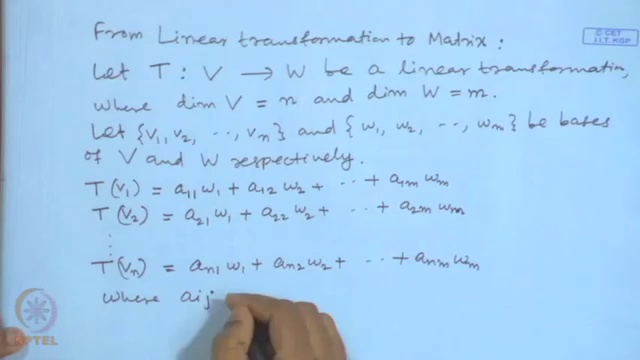 From Linear transformation to Matrix :
© CET
I.I.T. KGP
Let T : V → W be a linear transformation,
where dim V = n and dim W = m.
Let {v₁, v₂, ··, vₙ} and {w₁, w₂, ··, wₘ} be bases
of V and W respectively.
T(v₁) = a₁₁w₁ + a₁₂w₂ + ·· + a₁ₘwₘ
T(v₂) = a₂₁w₁ + a₂₂w₂ + ·· + a₂ₘwₘ
⋮
T(vₙ) = aₙ₁w₁ + aₙ₂w₂ + ·· + aₙₘwₘ
where aij
NPTEL